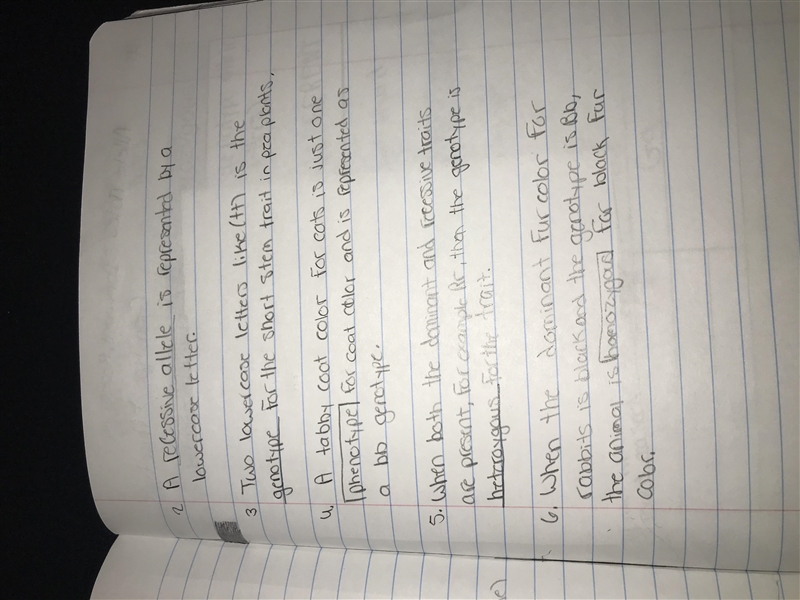 2 A recessive allele is represented by a
lowercase letter.
3 Two lowercase letters like (tt) is the
genotype for the short stem trait in pea plants.
4. A tabby coat color for cats is just one
phenotype for coat color and is represented as
a bb genotype.
5. When both the dominant and recessive traits
are present, for example Rr, then the genotype is
heterozygous for the trait.
6. When the dominant fur color for
rabbits is black and the genotype is Bb,
the animal is for black fur
color.